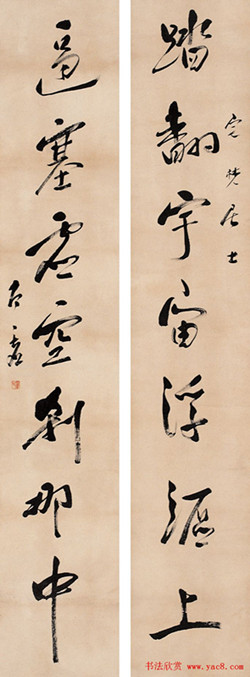 踏翻宇宙浮漚上
居士
逼塞虛空刹那中
书法欣赏
www.yac8.com